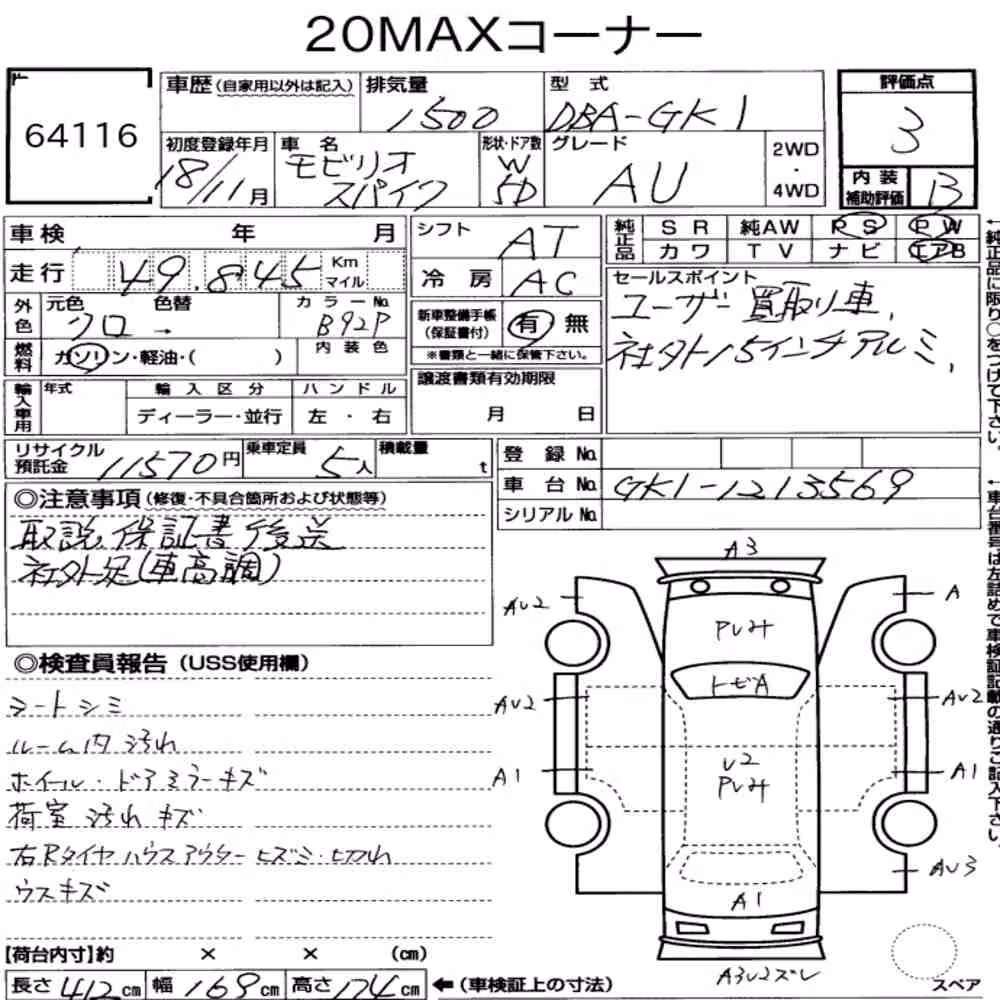 20MAXコーナー
64116
車歴(自家用以外は記入)
排気量
1500
型 式
DBA-GK1
評価点
3
初度登録年月
18/11月
車 名
モビリオ
スパイク
形状・ドア数
W
5D
グレード
AU
2WD
・
4WD
内 装
補助評価
B
車検 年 月
シフト
AT
純正品
S R 純AW P S P W
カワ T V ナビ エアB
走行 49,845 Km
マイル
冷 房 AC
セールスポイント
ユーザー買取り車,
社外15インチアルミ,
外色
元色 色替
クロ →
カラーNo.
B92P
新車整備手帳
(保証書付)
有 無
※書類と一緒に保管下さい。
燃料
ガソリン・軽油・( )
内装色
輸入車用
年式
輸入区分
ディーラー・並行
ハンドル
左・右
譲渡書類有効期限
月 日
リサイクル
預託金
11570円
乗車定員
5人
積載量
t
登 録 No.
車 台 No. GK1-1213569
シリアル No.
◎注意事項(修復・不具合箇所および状態等)
取説,保証書後送
社外足(車高調)
◎検査員報告(USS使用欄)
シートシミ
ルーム内 汚れ
ホイール・ドアミラーキズ
荷室 汚れ キズ
右Rタイヤハウスアウター ヒズミ・切れ
ウスキズ
A3
AU2
A
PUみ
トビA
AU2
AU2
A1
U2
PUみ
A1
AU3
A1
A3U2ズレ
スペア
【荷台内寸】約 × × (cm)
長さ 412cm 幅 169cm 高さ 174cm ←(車検証上の寸法)
←純正品に限り○をつけて下さい。
←車台番号は左詰めで車検証記載の通りご記入下さい。